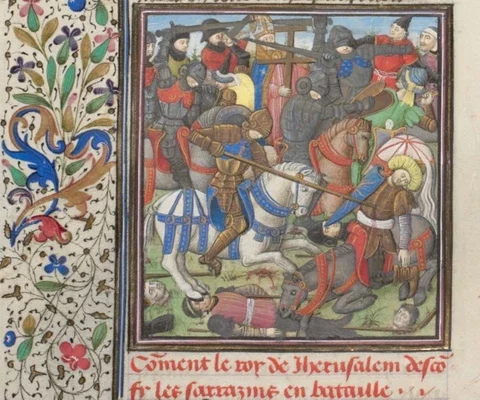 Com̄ent le roy de Jherusalem desco
fy les sarrazins en bataille . .